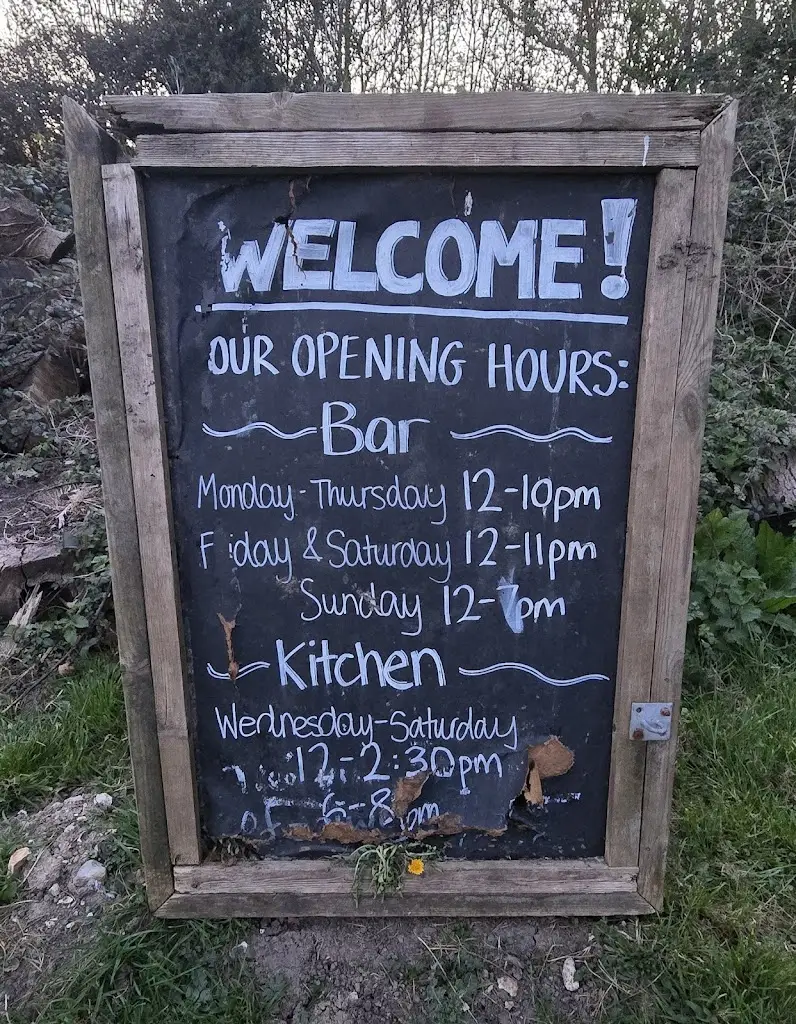 WELCOME!
OUR OPENING HOURS:
Bar
Monday-Thursday 12-10pm
F iday & Saturday 12-11pm
Sunday 12-7pm
Kitchen
Wednesday-Saturday
12-2:30pm
6-8 pm